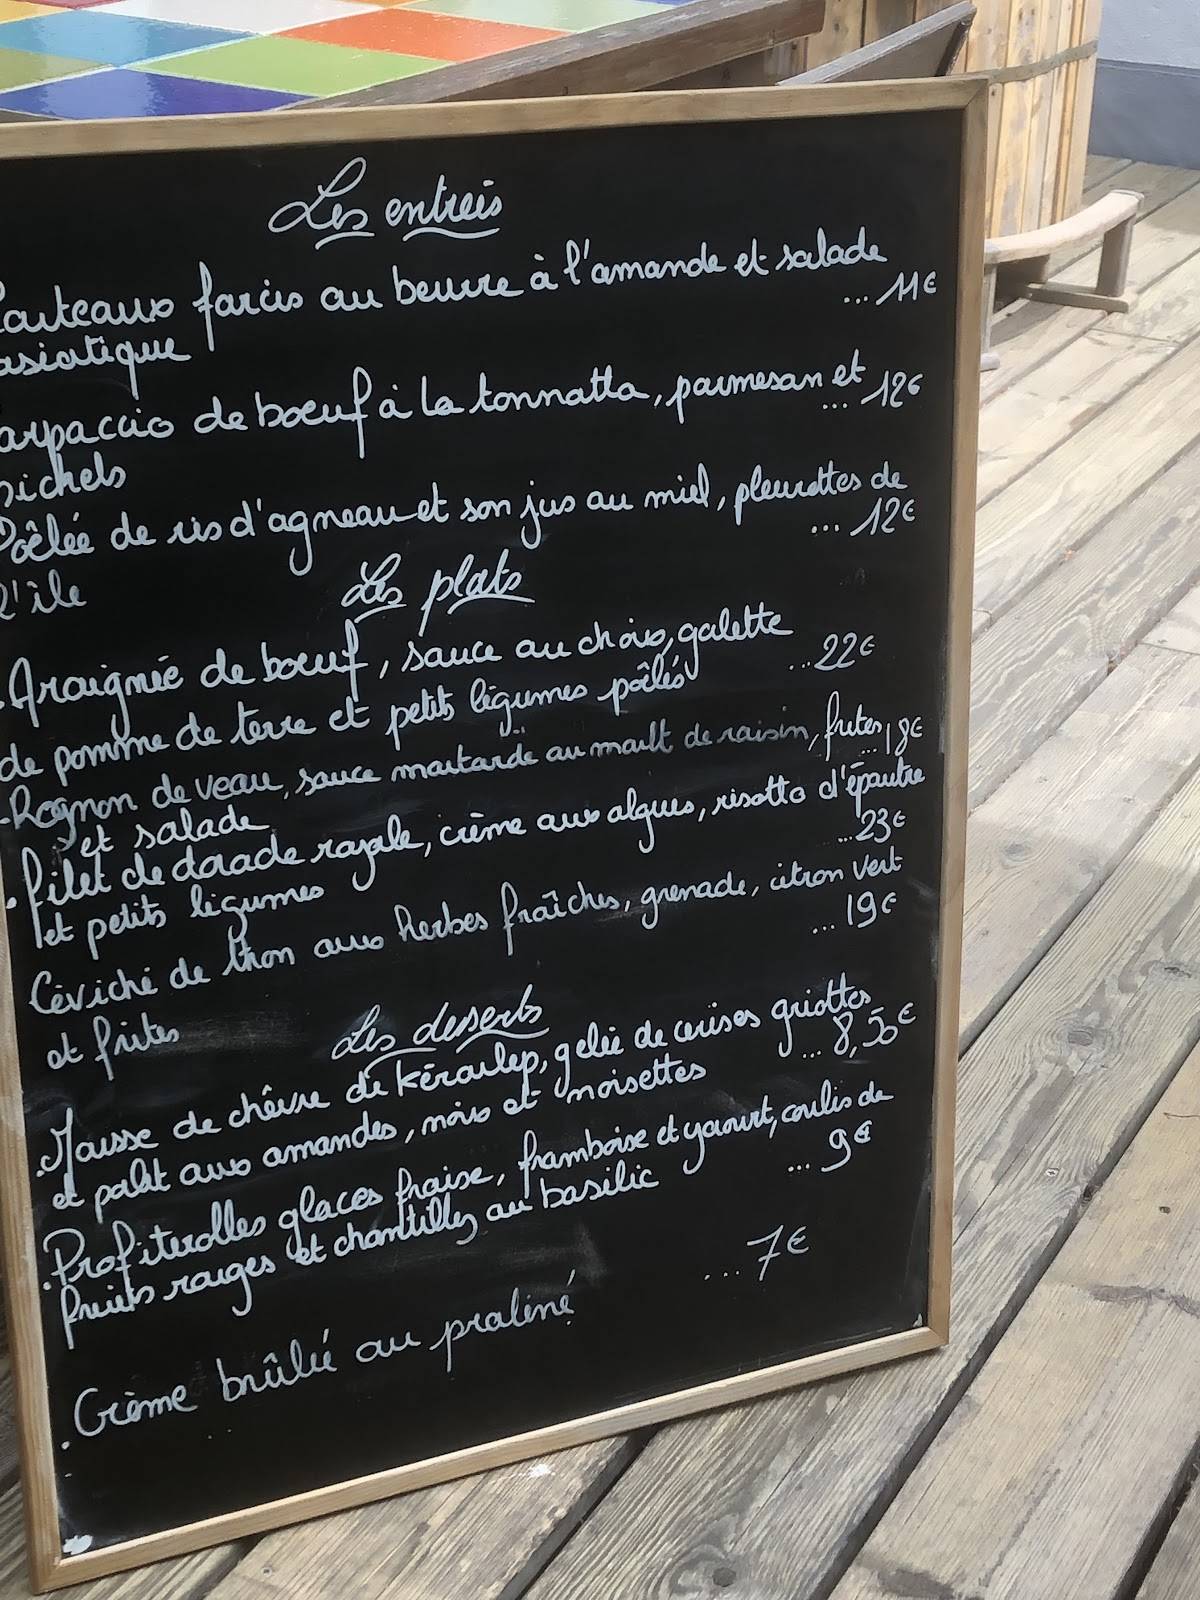 Les entrées
Couteaux farcis au beurre à l'amande et salade
asiatique ... 11€
arpaccio de boeuf à la tonnatta, parmesan et
pickels ... 12€
Poêlée de ris d'agneau et son jus au miel, pleurottes de
l'île ... 12€
Les plats
. Araignée de boeuf, sauce au choix, galette
de pomme de terre et petits légumes pôêlés ... 22€
- Rognon de veau, sauce moutarde au moult de raisin, frites
et salade ... 18€
. Filet de dorade royale, crème aux algues, risotto d'épautre
et petits légumes ... 23€
Céviché de thon aux herbes fraîches, grenade, citron vert
et frites ... 19€
Les desserts
. Mousse de chèvre de Kérouilep, gelée de cerises griottes
et palet aux amandes, noix et noisettes ... 8,50€
. Profiterolles glaces fraise, framboise et yaourt, coulis de
fruits rouges et chantilly au basilic ... 9€
. Crème brûlée au praliné ... 7€